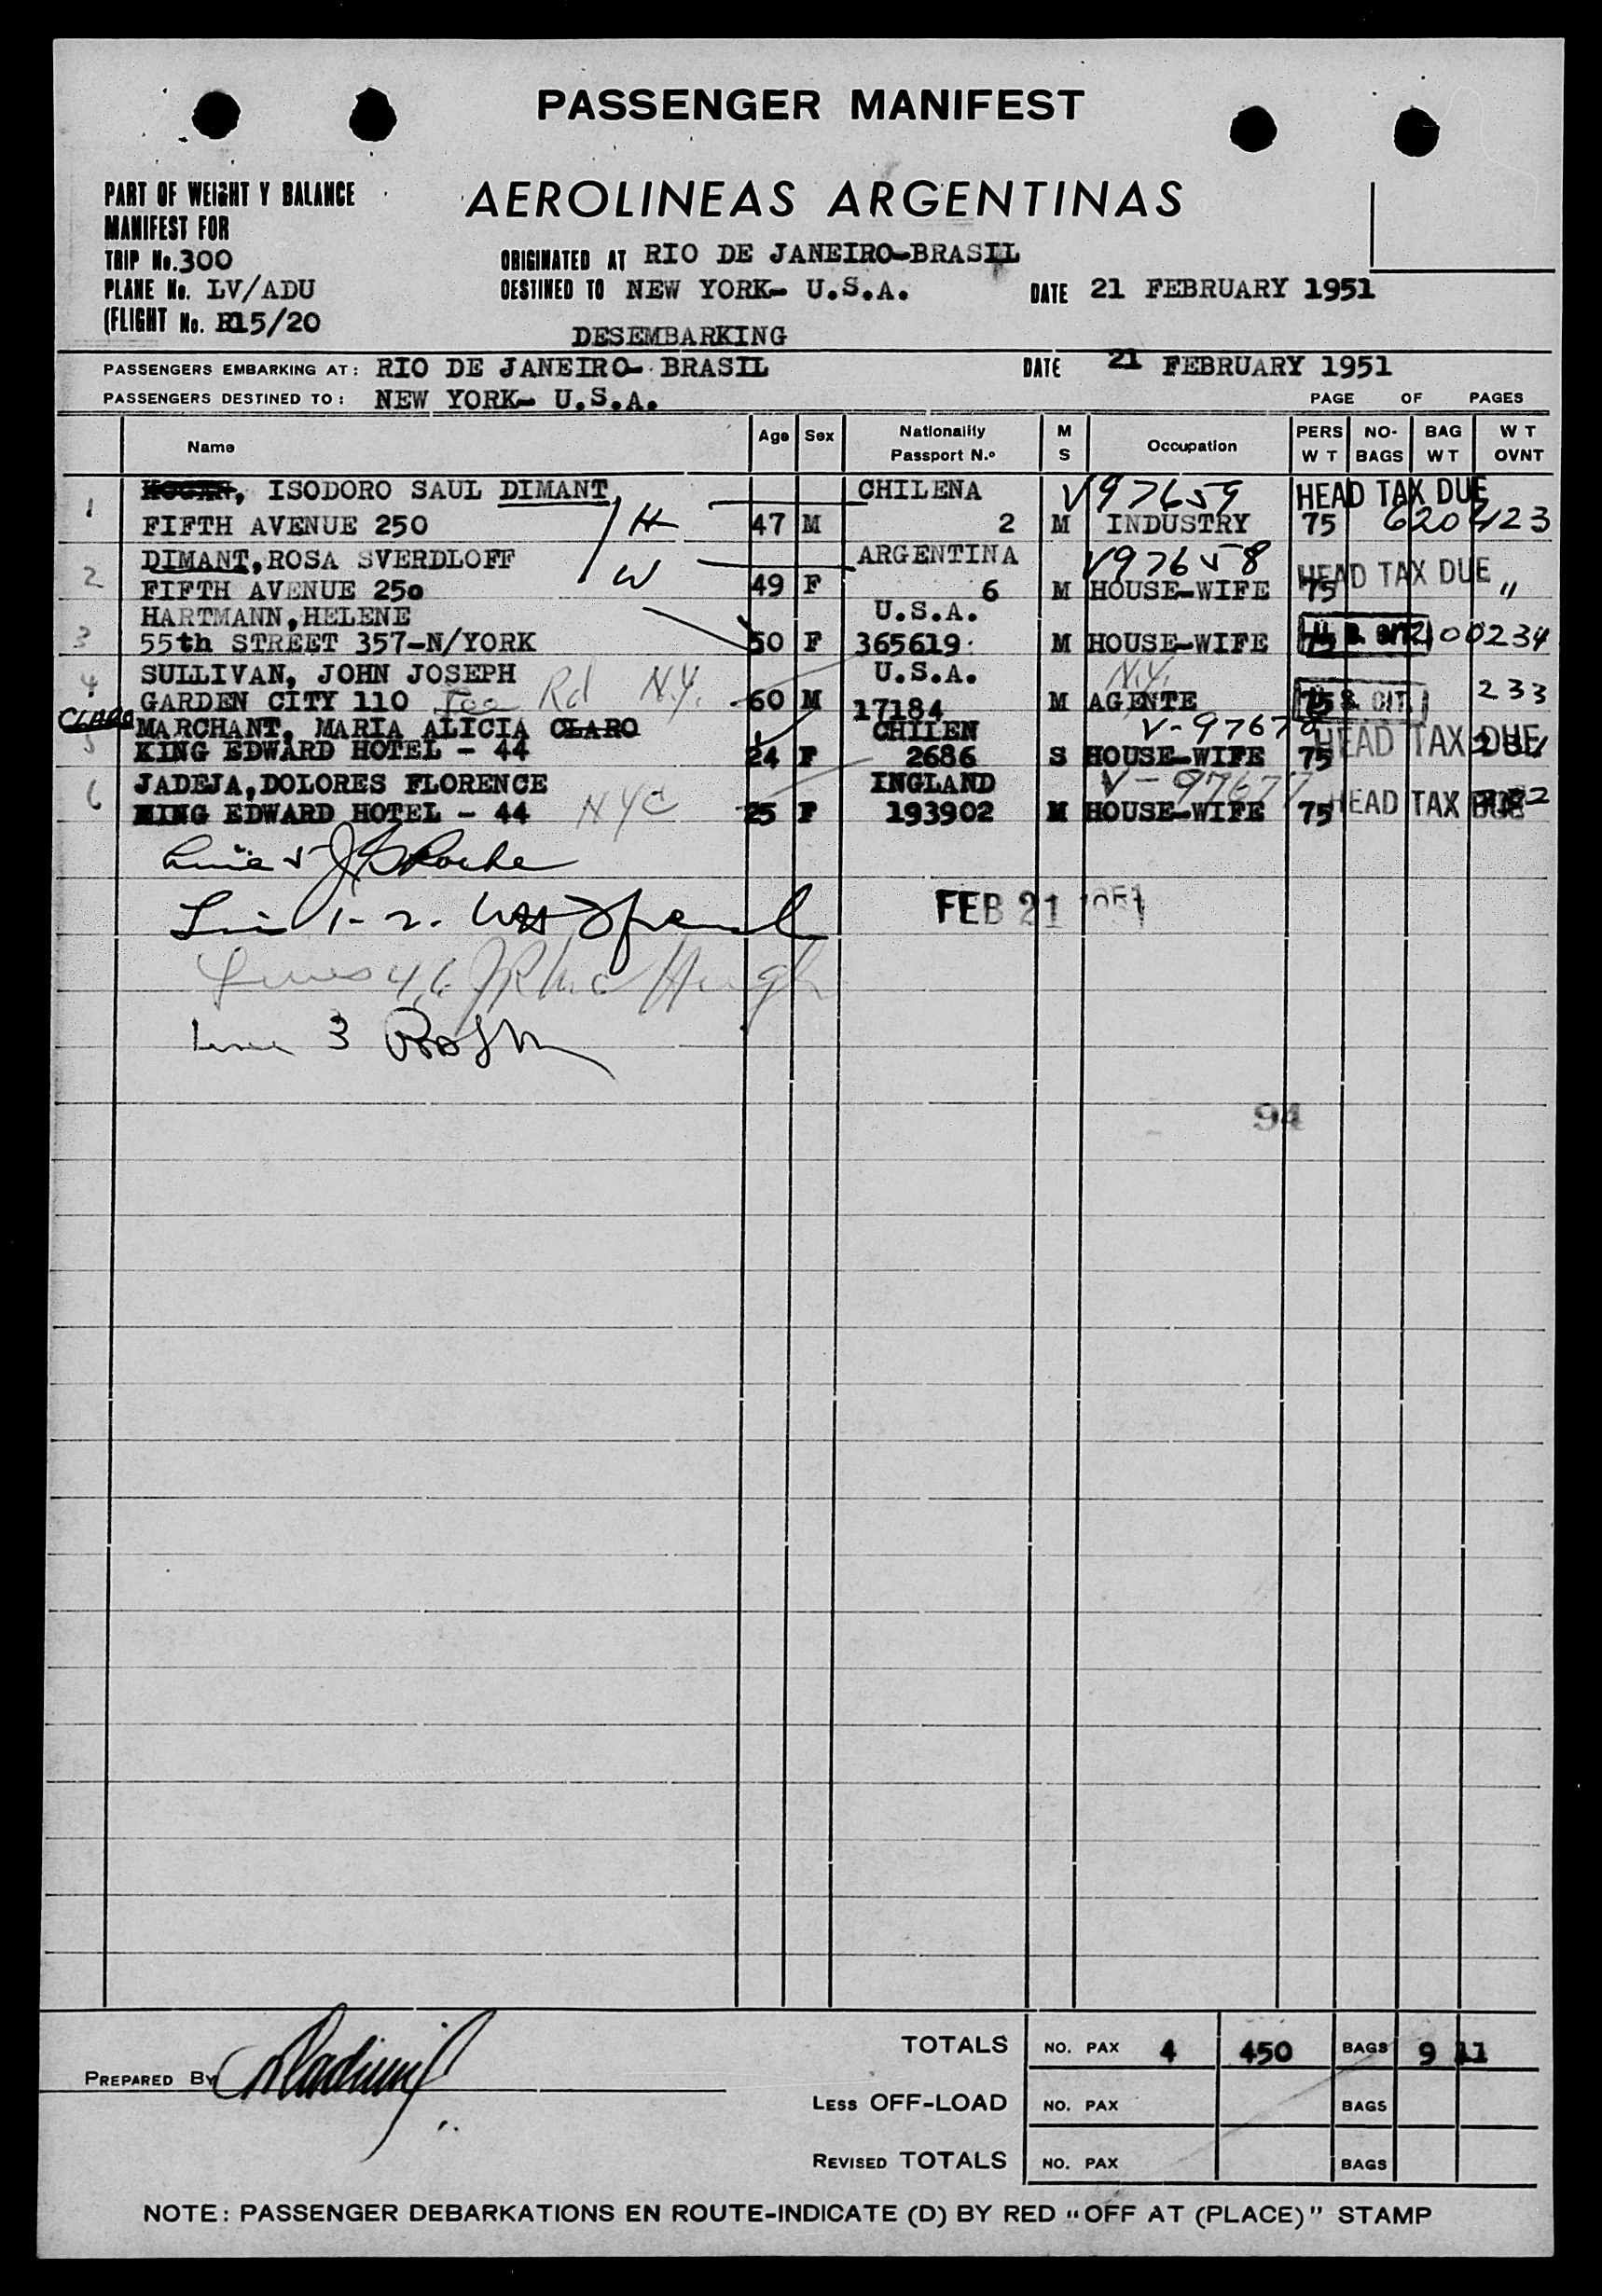 PASSENGER MANIFEST
PART OF WEIGHT Y BALANCE
MANIFEST FOR
AEROLINEAS ARGENTINAS
TRIP No. 300
ORIGINATED AT RIO DE JANEIRO-BRASIL
PLANE No. LV/ADU
DESTINED TO NEW YORK- U.S.A.
DATE 21 FEBRUARY 1951
(FLIGHT No. R15/20
DESEMBARKING
PASSENGERS EMBARKING AT: RIO DE JANEIRO- BRASIL DATE 21 FEBRUARY 1951
PASSENGERS DESTINED TO: NEW YORK- U.S.A. PAGE OF PAGES
Name Age Sex Nationality Passport N.º M S Occupation PERS WT NO- BAGS BAG WT WT OVNT
1 ISODORO SAUL DIMANT CHILENA V97659 HEAD TAX DUE
FIFTH AVENUE 250 H 47 M 2 M INDUSTRY 75 620423
2 DIMANT, ROSA SVERDLOFF ARGENTINA V97658 HEAD TAX DUE
FIFTH AVENUE 250 W 49 F 6 M HOUSE-WIFE 75 "
HARTMANN, HELENE U.S.A.
3 55th STREET 357-N/YORK 50 F 365619 M HOUSE-WIFE 75
4 SULLIVAN, JOHN JOSEPH U.S.A. N.Y.
GARDEN CITY 110 Rd N.Y. 60 M 17184 M AGENTE 75 233
CLARO MARCHANT, MARIA ALICIA CLARO CHILEN HEAD TAX DUE
5 KING EDWARD HOTEL - 44 24 F 2686 S HOUSE-WIFE 75
6 JADEJA, DOLORES FLORENCE INGLAND V-97677
KING EDWARD HOTEL - 44 NYC 25 F 193902 M HOUSE-WIFE 75 HEAD TAX DUE
Line 5
1-2.
FEB 21 1951
Lines 4,6
line 3
94
TOTALS NO. PAX 4 450 BAGS 9 11
PREPARED BY
LESS OFF-LOAD NO. PAX BAGS
REVISED TOTALS NO. PAX BAGS
NOTE: PASSENGER DEBARKATIONS EN ROUTE-INDICATE (D) BY RED "OFF AT (PLACE)" STAMP